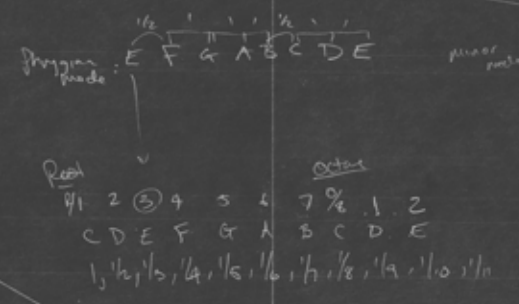 1/2 1 1 1 1/2 1 1
Phrygian mode: E F G A B C D E
minor
Root octave
0/1 2 3 4 5 6 7 0/8 1 2
C D E F G A B C D E
1, 1/2, 1/3, 1/4, 1/5, 1/6, 1/7, 1/8, 1/9, 1/10, 1/11